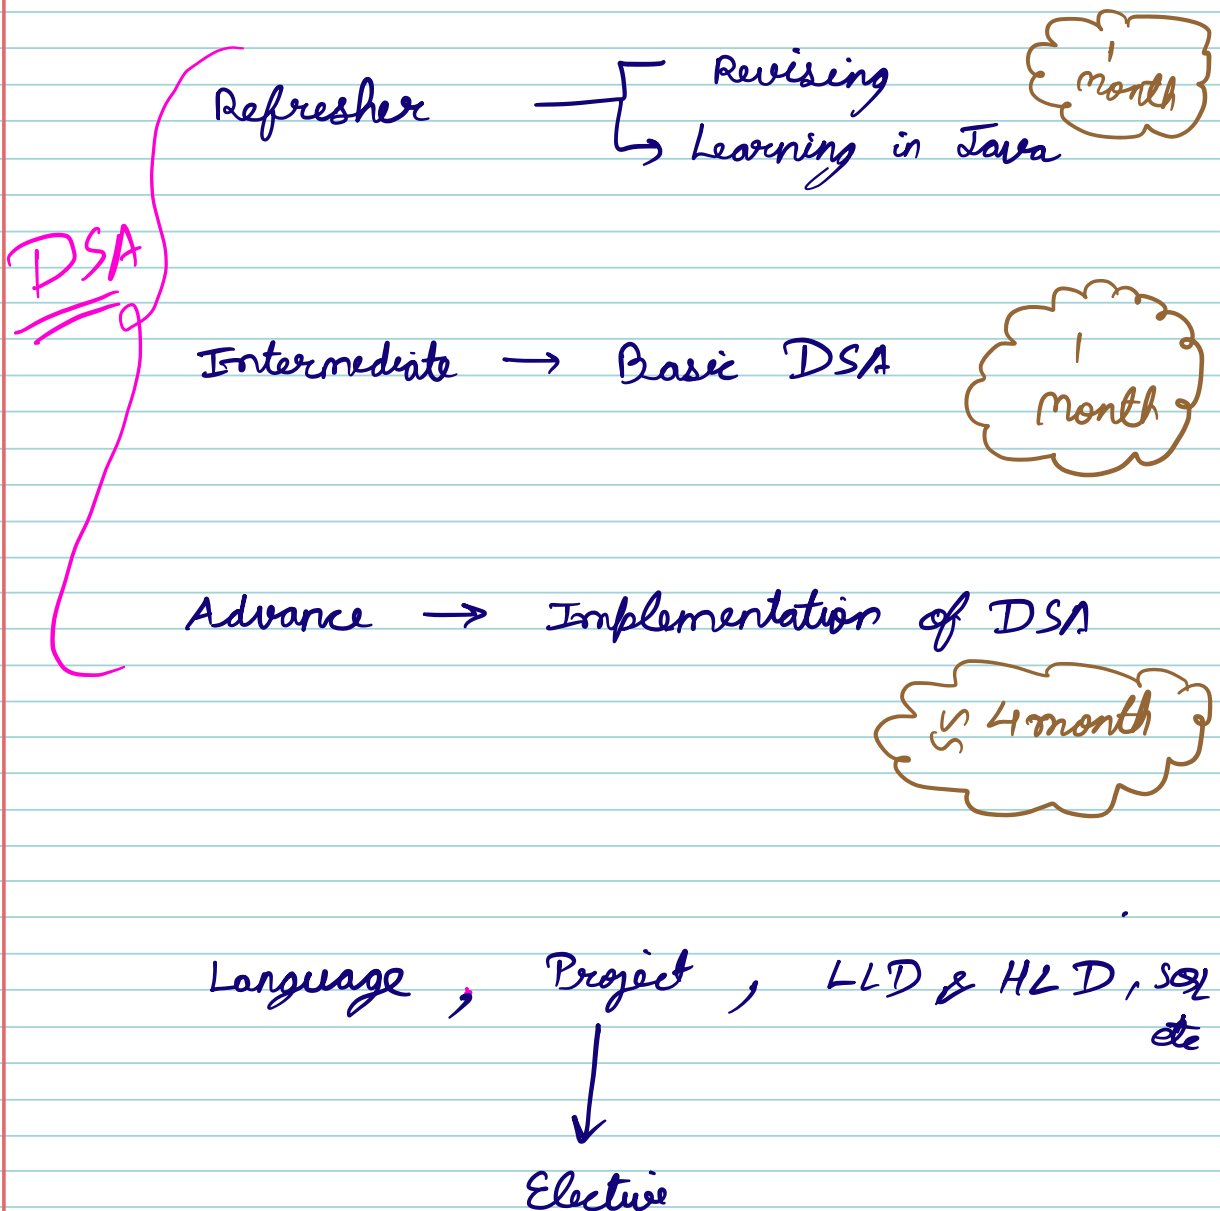 Refresher Revising
Learning in Java
1
month
DSA
Intermediate → Basic DSA
1
month
Advance → Implementation of DSA
≈ 4 month
Language, Project, LLD & HLD, SQL
etc
Elective